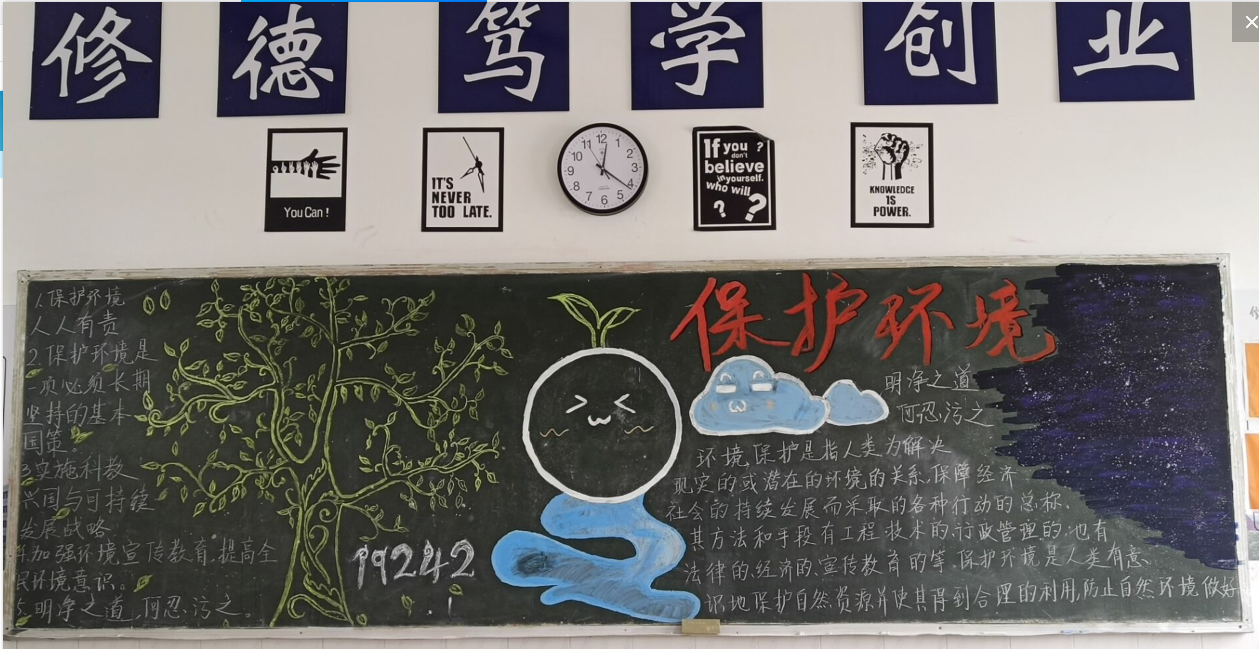 修德笃学创业
You Can !
IT'S
NEVER
TOO LATE.
12
1
2
3
4
5
6
7
8
9
10
11
If you ?
don't
believe
in yourself.
who will
??
KNOWLEDGE
IS
POWER.
1.保护环境
人人有责
2.保护环境是
一项必须长期
坚持的基本
国策。
3实施科教
兴国与可持续
发展战略
4加强环境宣传教育,提高全
民环境意识。
5.明净之道,何忍污之。
19242
保护环境
明净之道
何忍污之
环境保护是指人类为解决
现实的或潜在的环境的关系,保障经济
社会的持续发展而采取的各种行动的总称.
其方法和手段有工程技术的,行政管理的,也有
法律的,经济的,宣传教育的等.保护环境是人类有意
识地保护自然资源并使其得到合理的利用,防止自然环境做好